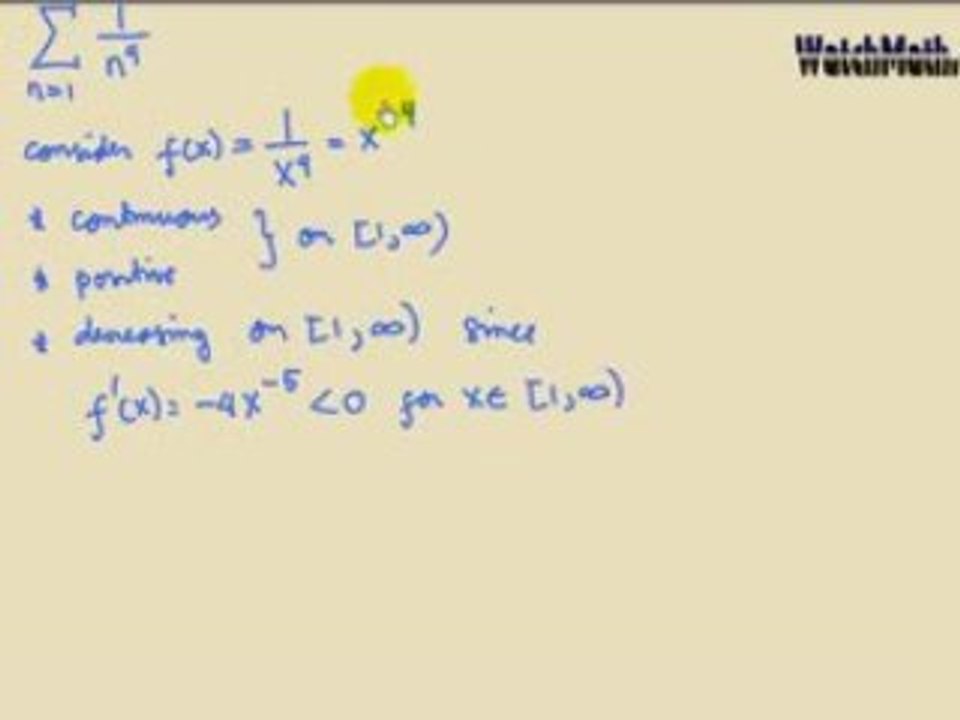 ∑ n=1 1/n⁴
WatchMath
consider f(x) = 1/x⁴ = x⁻⁴
* continuous } on [1,∞)
* positive
* decreasing on [1,∞) since
f'(x) = -4x⁻⁵ <0 for x∈ [1,∞)